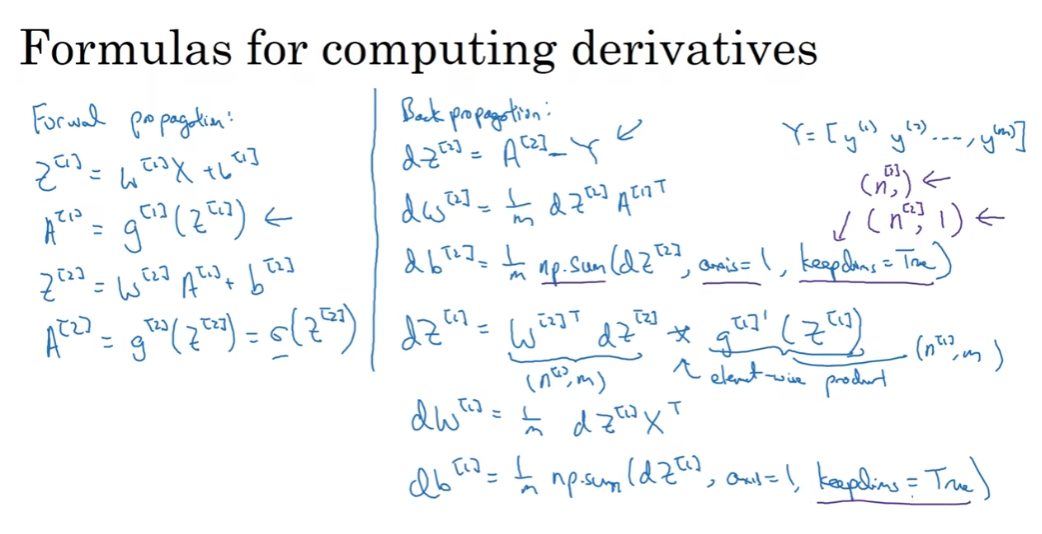 Formulas for computing derivatives
Forwal propagation:
Z^[1] = W^[1]X + b^[1]
A^[1] = g^[1](Z^[1]) ←
Z^[2] = W^[2] A^[1] + b^[2]
A^[2] = g^[2](Z^[2]) = σ(Z^[2])
Back propagation:
dZ^[2] = A^[2] - Y ↙
dW^[2] = 1/m dZ^[2] A^[1]T
db^[2] = 1/m np.sum(dZ^[2], axis=1, keepdims=True)
dZ^[1] = W^[2]T dZ^[2] * g^[1]'(Z^[1])
(n^[1], m) ↖ element-wise product (n^[1], m)
dW^[1] = 1/m dZ^[1] X^T
db^[1] = 1/m np.sum(dZ^[1], axis=1, keepdims=True)
Y = [y^(1) y^(2) ..., y^(m)]
(n^[2],) ←
↙ (n^[2], 1) ←